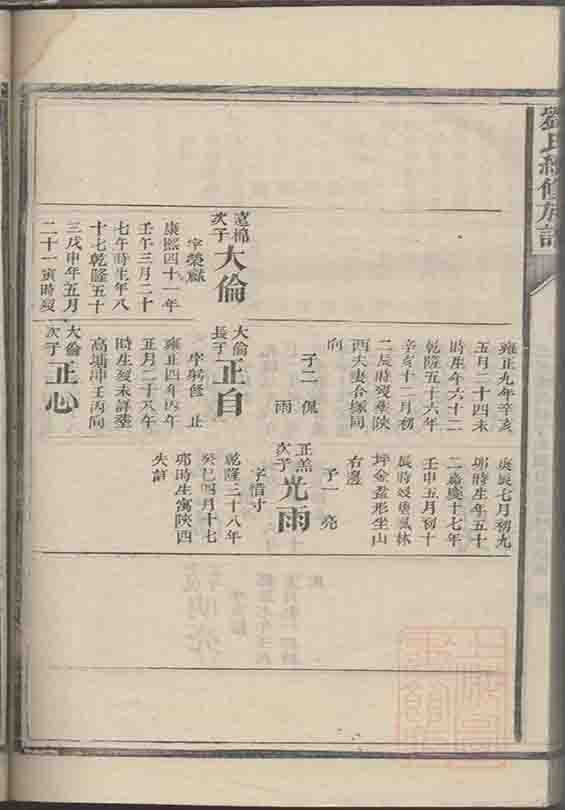 氏續修族譜
次子
大倫
字榮嶽
康熙四十一年
壬午三月二十
七午時生年八
十七乾隆五十
三戊申年五月
二十一寅時歿
雍正九年辛亥
五月二十四未
時生年六十二
乾隆五十六年
辛亥十二月初
二辰時歿葬陝
西夫妻合塚同
向
子二 佩
雨
大倫
長子
正自
字躬修 止
雍正四年丙午
正月二十八午
時生歿未詳葬
高塘沖壬丙向
大倫
次子
正心
庚辰七月初九
卯時生年五十
二嘉慶十七年
壬申五月初十
辰時歿葬楓林
坪金盤形坐山
右邊
子一 亮
正羔
次子
光雨
字惜寸
乾隆三十八年
癸巳四月十七
卯時生寓陝西
失詳